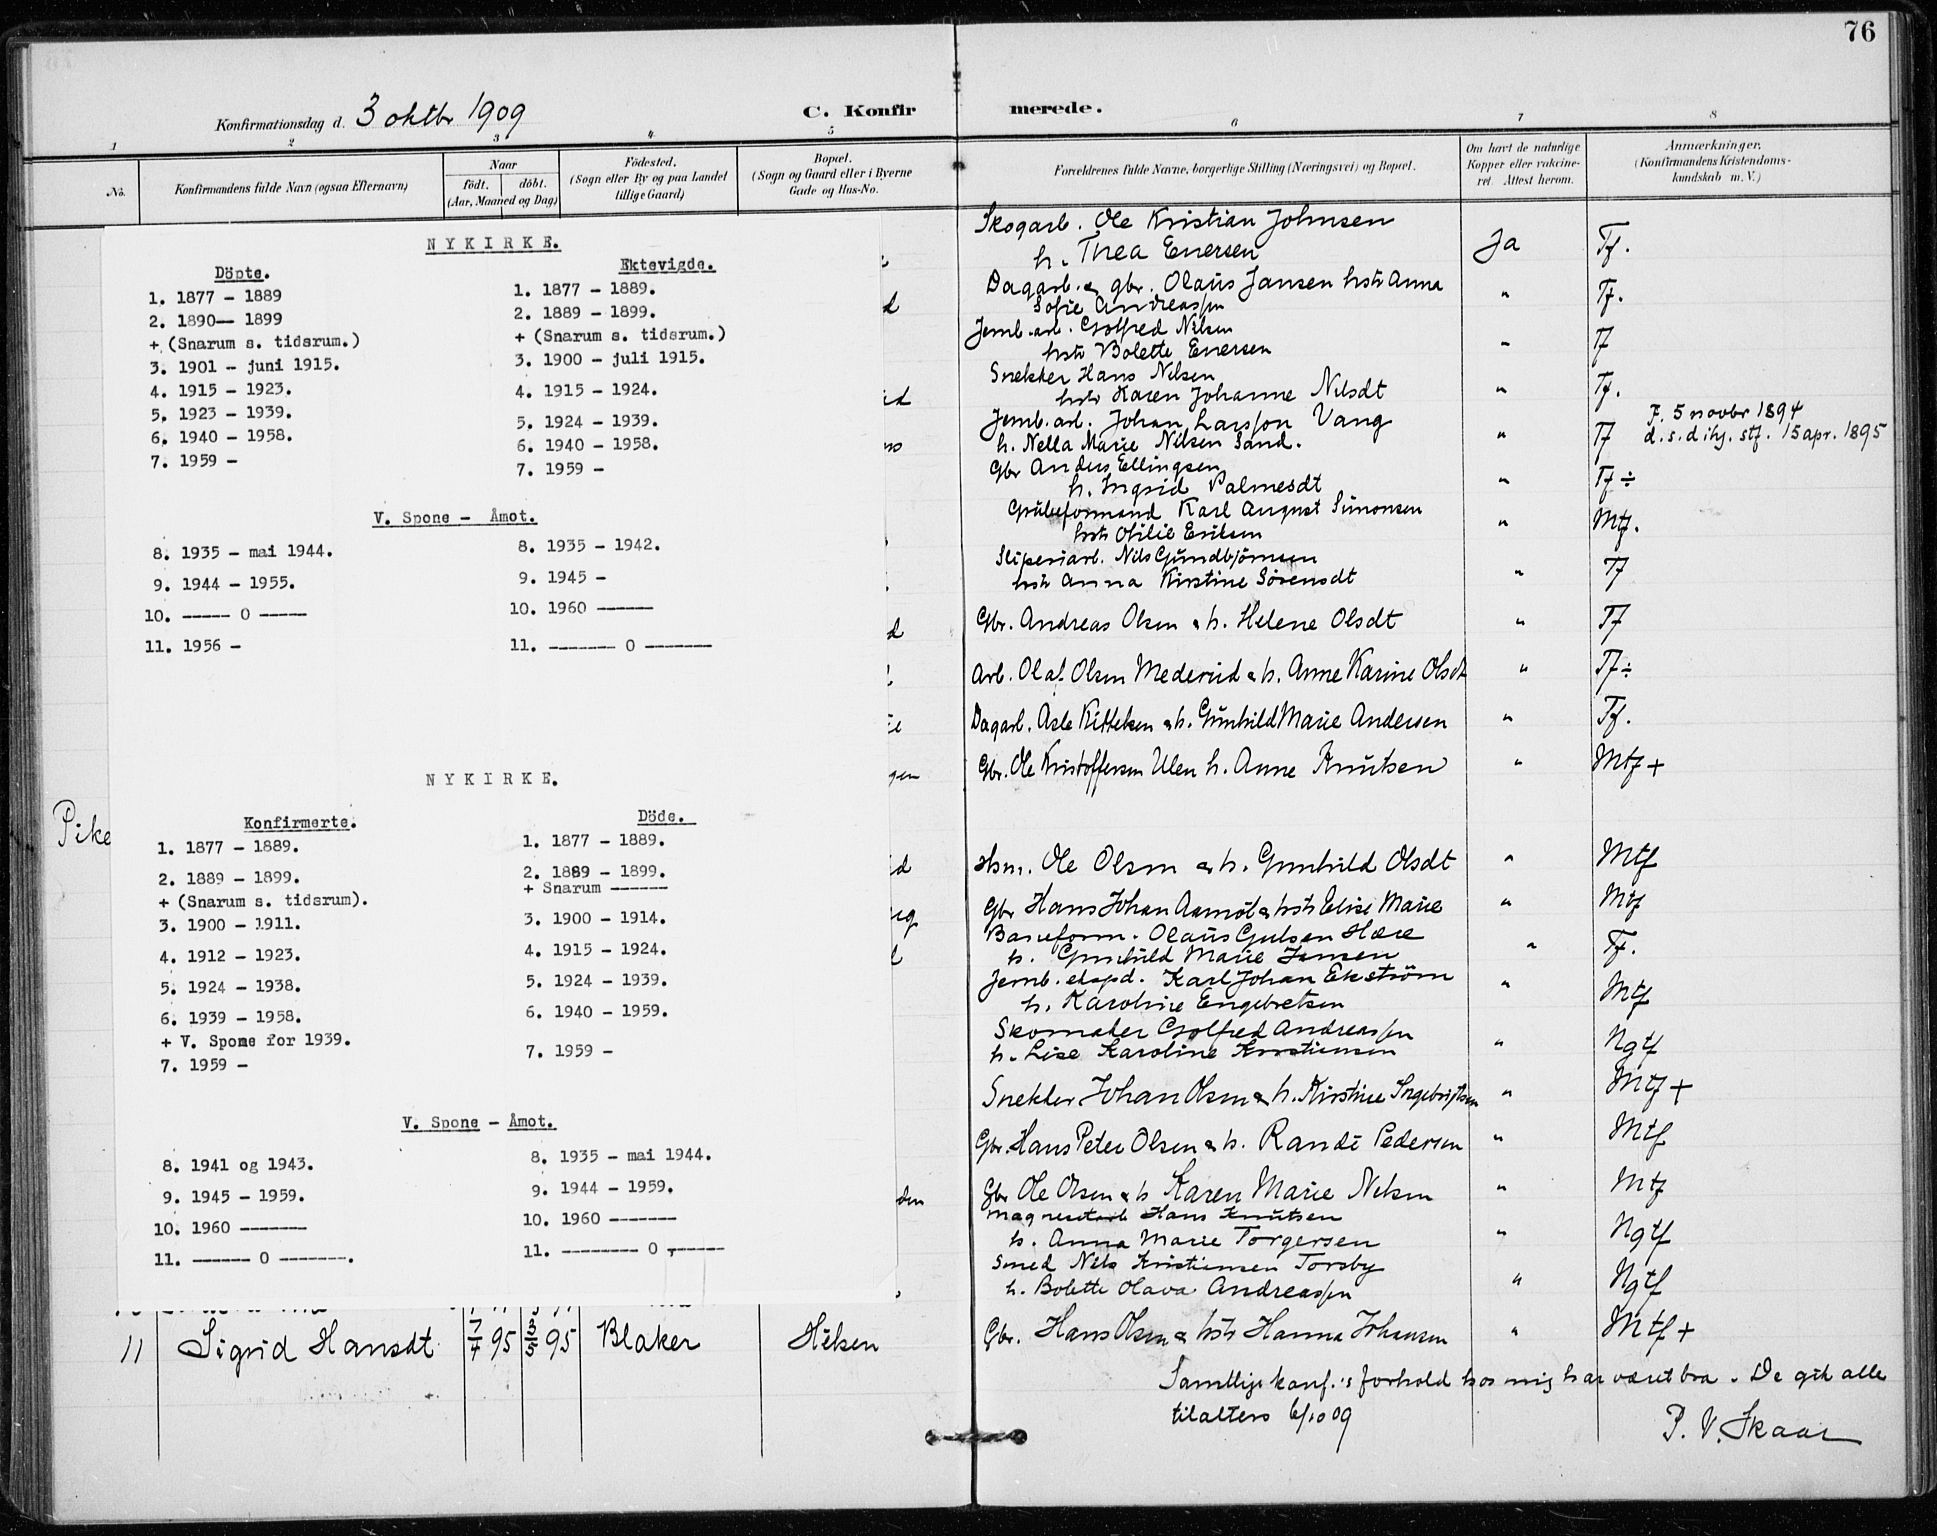 76
Konfirmationsdag d. 3 oktbr 1909
C. Konfirmerede.
1 2 3 4 5 6 7 8
No.
Konfirmandens fulde Navn (ogsaa Efternavn)
Naar
födt. döbt.
(Aar, Maaned og Dag)
Födested.
(Sogn eller By og paa Landet
tillige Gaard)
Bopæl.
(Sogn og Gaard eller i Byerne
Gade og Hus-No.
Forældrenes fulde Navne, borgerlige Stilling (Næringsvei) og Bopæl.
Om havt de naturlige
Kopper eller vakcine-
ret. Attest herom.
Anmærkninger.
(Konfirmandens Kristendoms-
kundskab m. V.)
NYKIRKE.
Döpte.
1. 1877 - 1889
2. 1890-- 1899
+ (Snarum s. tidsrum.)
3. 1901 - juni 1915.
4. 1915 - 1923.
5. 1923 - 1939.
6. 1940 - 1958.
7. 1959 -
Ektevigde.
1. 1877 - 1889.
2. 1889 - 1899.
+ (Snarum s. tidsrum.)
3. 1900 - juli 1915.
4. 1915 - 1924.
5. 1924 - 1939.
6. 1940 - 1958.
7. 1959 -
V. Spone - Åmot.
8. 1935 - mai 1944.
9. 1944 - 1955.
10. ----- 0 -----
11. 1956 -
8. 1935 - 1942.
9. 1945 -
10. 1960 ------
11. ------- 0 -------
NYKIRKE.
Konfirmerte.
1. 1877 - 1889.
2. 1889 - 1899.
+ (Snarum s. tidsrum).
3. 1900 - 1911.
4. 1912 - 1923.
5. 1924 - 1938.
6. 1939 - 1958.
+ V. Spone for 1939.
7. 1959 -
Döde.
1. 1877 - 1889.
2. 1889 - 1899.
+ Snarum ------
3. 1900 - 1914.
4. 1915 - 1924.
5. 1924 - 1939.
6. 1940 - 1959.
7. 1959 -
V. Spone - Åmot.
8. 1941 og 1943.
9. 1945 - 1959.
10. 1960 -------
11. ------ 0 -------.
8. 1935 - mai 1944.
9. 1944 - 1959.
10. 1960 -------
11. -------- 0 ------
Pike
11 Sigrid Hansdt 7/4 95 3/5 95 Blaker Hilsen
Skogarb. Ole Kristian Johnsen
h. Thea Enersen Ja Tf.
Dagarb. & gbr. Olaus Jansen hstr Anna
Sofie Andreassen " Tf.
Jernb. arb. Gotfred Nilsen
hstr Bolette Enersen " Tf
Snekker Hans Nilsen
hstr Karen Johanne Nilsdt " Tf.
Jernb. arb. Johan Larsson Vang
h. Nella Marie Nilsen Sand. " Tf
F. 5 novbr 1894
d. s. d ihj. stf. 15 apr. 1895
Gbr Anders Ellingsen
h. Ingrid Palmesdt " Tf ÷
Grubeformand Karl August Simonsen
hstr Otilie Eriksen " Mtf.
Sliperiarb. Nils Gundbjörnsen
hstr Anna Kirstine Sörensdt " Tf
Gbr. Andreas Olsen & h. Helene Olsdt " Tf
Arb. Olaf Olsen Mederud & h. Anne Karine Olsdt " Tf ÷
Dagarb. Asle Kittelsen & h. Gunhild Marie Andersen " Tf.
Gbr. Ole Kristoffersen Ulen h. Anne Knutsen " Mtf +
Hsm. Ole Olsen & h. Gunhild Olsdt " Mtf
Gbr Hans Johan Aamot & hstr Elise Marie " Mtf
Baneform. Olaus Gulsen Hære
h. Gunhild Marie Jensen " Tf.
Jernb. ekspd. Karl Johan Ekström
h. Karoline Engebretsen " Mtf
Skomaker Gotfred Andreassen
h. Lise Karoline Kristiansen " Ngtf
Snekker Johan Olsen & h. Kirstine Ingebrigtsen " Mtf +
Gbr. Hans Peter Olsen & h. Randi Pedersen " Mtf
Gbr Ole Olsen & h Karen Marie Nilsen " Mtf
Magnesitarb Hans Knutsen
h. Anna Marie Torgersen " Ngtf
Smed Nils Kristiansen Torsby
h. Bolette Olava Andreassen " Ngtf
Gbr. Hans Olsen & hstr Hanna Johansen " Mtf +
Samtlige konf.'s forhold hos mig har været bra. De gik alle
tilalters 6/10 09
P. V. Skaar